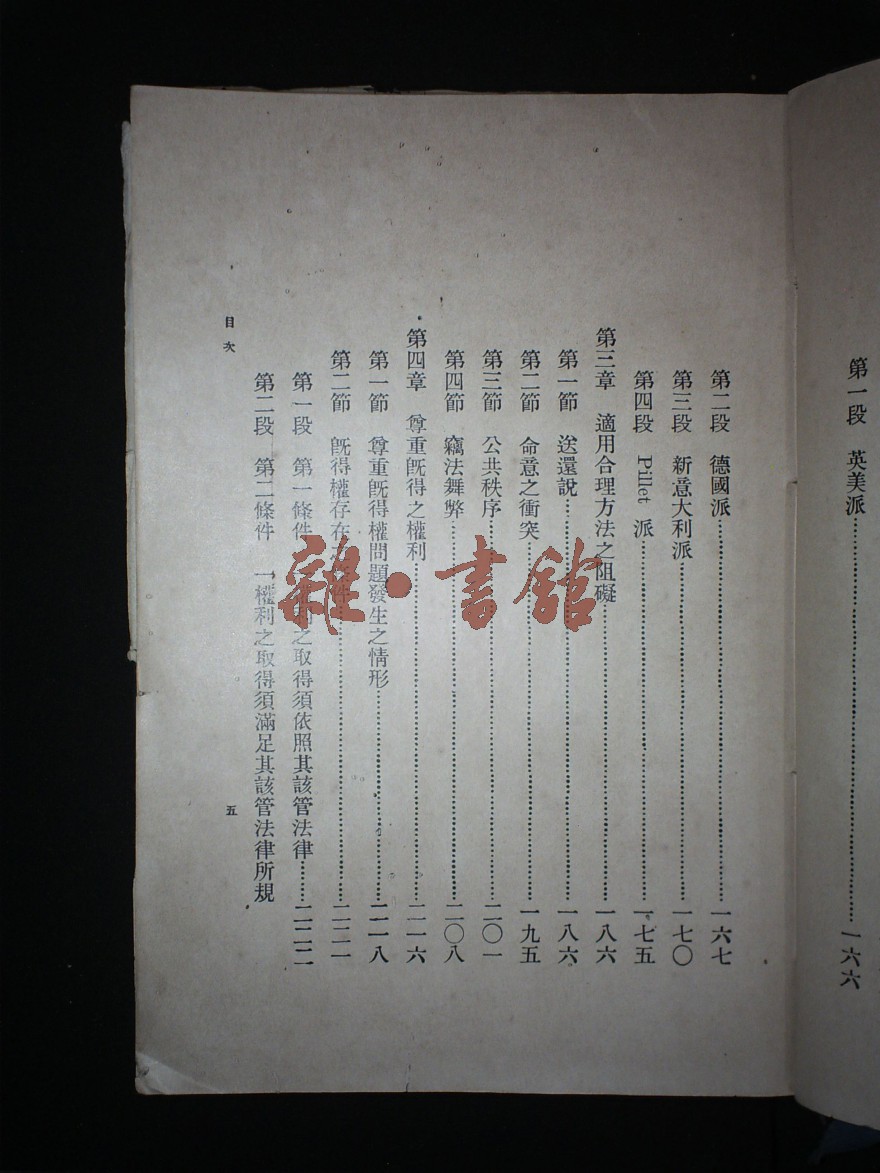 第一段　英美派……一六六
第二段　德國派……一六七
第三段　新意大利派……一七〇
第四段　Pillet 派……一七五
第三章　適用合理方法之阻礙……一八六
第一節　送還說……一八六
第二節　命意之衝突……一九五
第三節　公共秩序……二〇一
第四節　竊法舞弊……二〇八
第四章　尊重既得之權利……二一六
第一節　尊重既得權問題發生之情形……二一八
第二節　既得權存在之條件……二二一
第一段　第一條件　一權利之取得須依照其該管法律……二二二
第二段　第二條件　一權利之取得須滿足其該管法律所規
目次
五
雜·書館